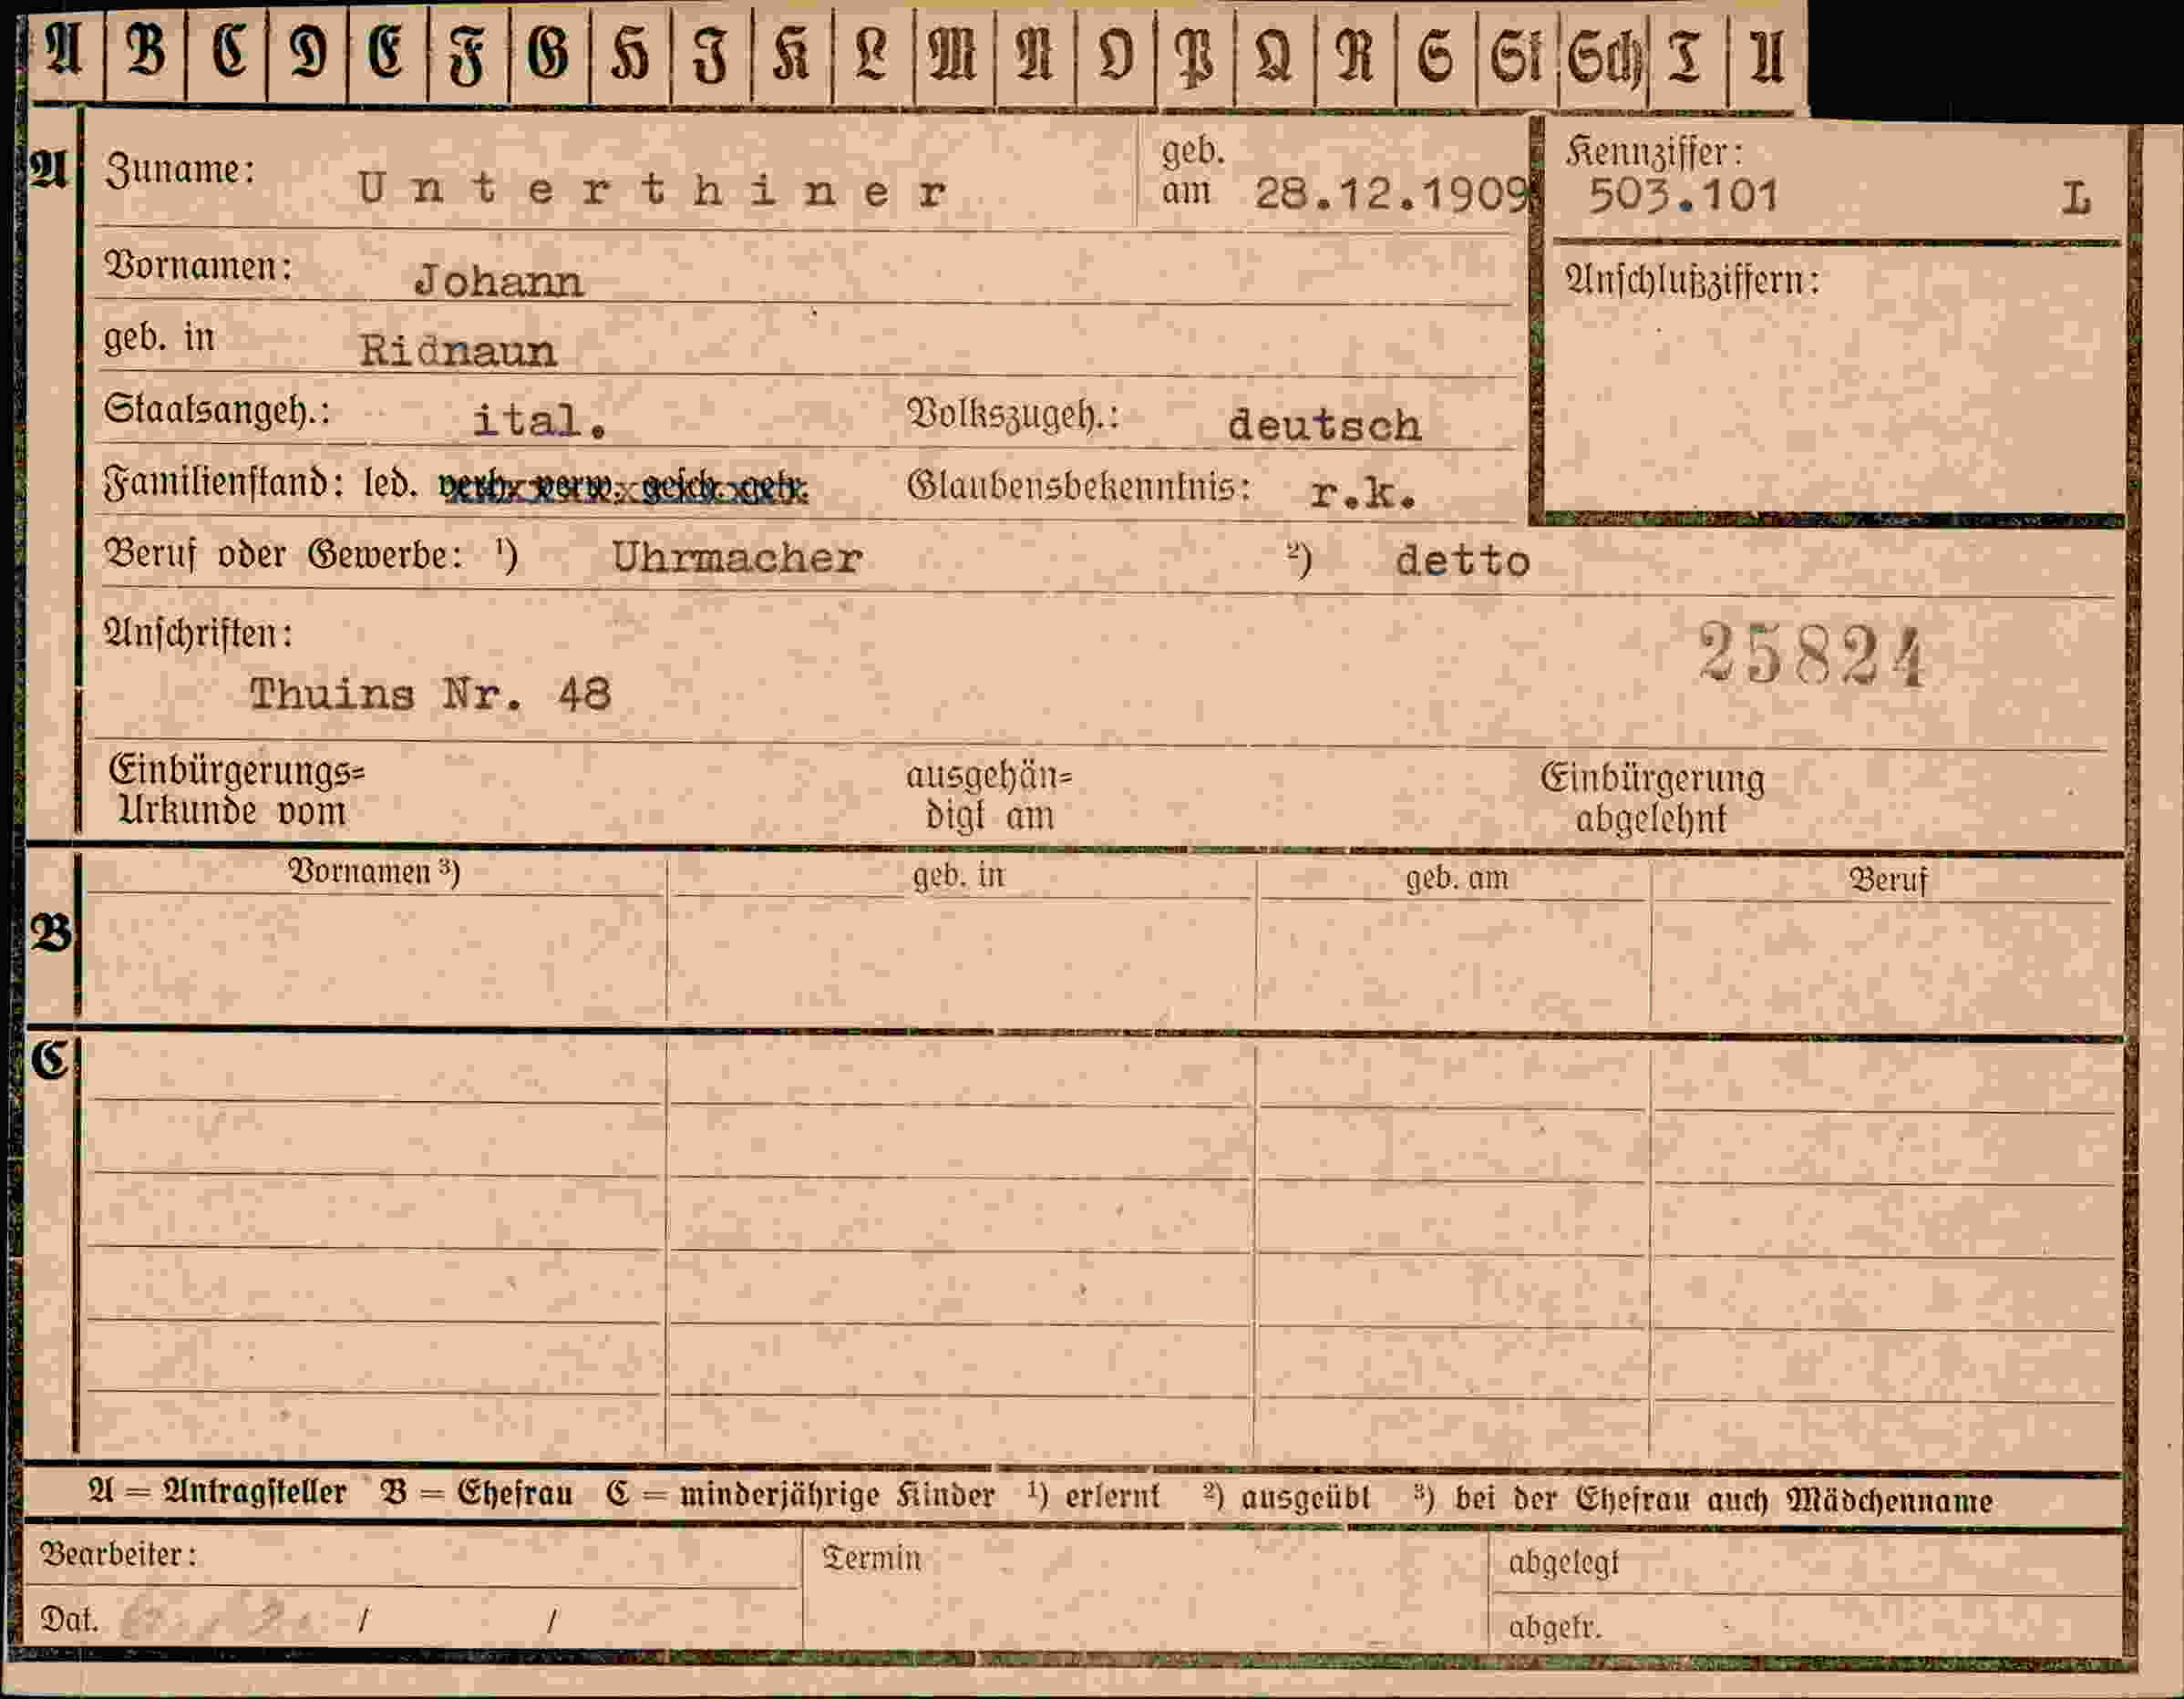 A B C D E F G H I K L M N O P Q R S St Sch T U
A Zuname: Unterthiner geb. am 28.12.1909 Kennziffer: 503.101 L
Vornamen: Johann Anschlußziffern:
geb. in Ridnaun
Staatsangeh.: ital. Volkszugeh.: deutsch
Familienstand: led. verh. verw. gesch. getr. Glaubensbekenntnis: r.k.
Beruf oder Gewerbe: ¹) Uhrmacher ²) detto
Anschriften: 25824
Thuins Nr. 48
Einbürgerungs= ausgehän= Einbürgerung
Urkunde vom digt am abgelehnt
Vornamen ³) geb. in geb. am Beruf
B
C
A = Antragsteller B = Ehefrau C = minderjährige Kinder ¹) erlernt ²) ausgeübt ³) bei der Ehefrau auch Mädchenname
Bearbeiter: Termin abgelegt
Dat. / / abgetr.